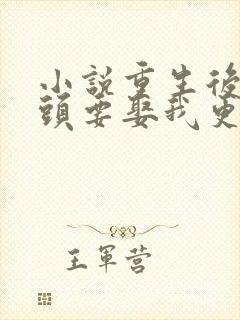 小說重生後
頭要娶我更
王軍营